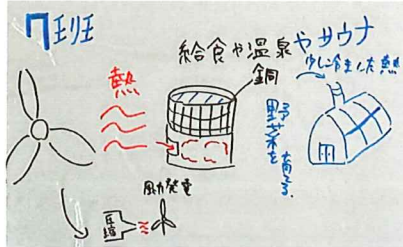 7班
給食や温泉やサウナ
銅
少し冷ました熱
熱
野菜を育てる
風力発電
圧縮